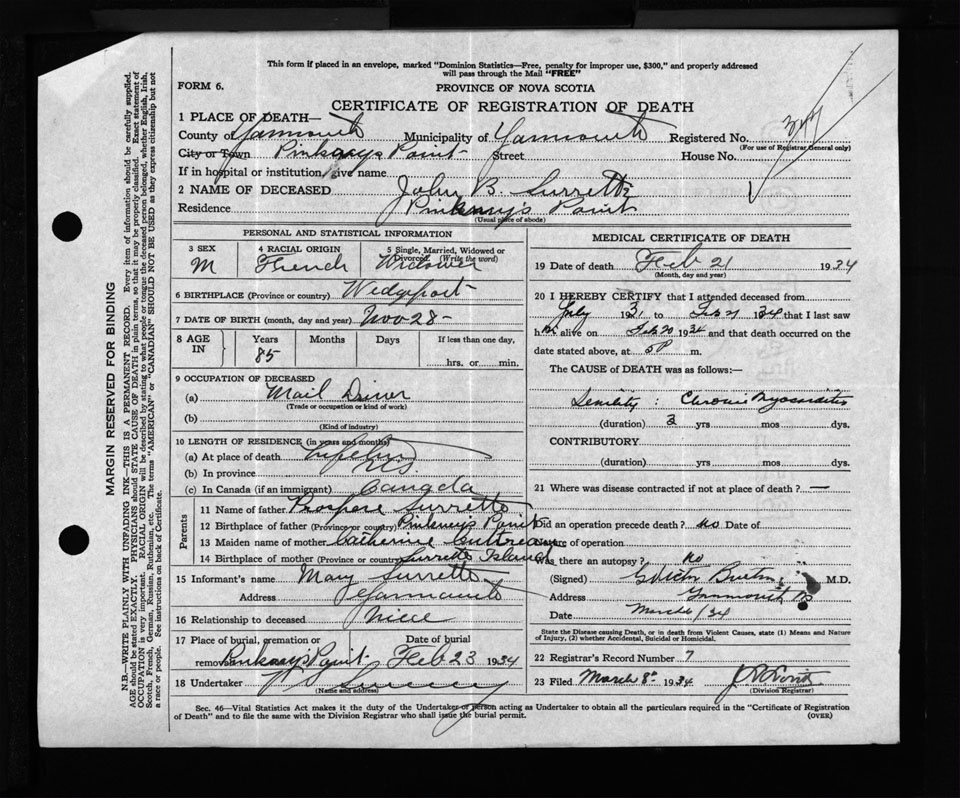 This form if placed in an envelope, marked "Dominion Statistics—Free, penalty for improper use, $300," and properly addressed
will pass through the Mail "FREE"
FORM 6. PROVINCE OF NOVA SCOTIA
CERTIFICATE OF REGISTRATION OF DEATH
1 PLACE OF DEATH—
County of Yarmouth Municipality of Yarmouth Registered No.
(For use of Registrar General only)
City or Town Pinkneys Point Street House No.
If in hospital or institution, give name
2 NAME OF DECEASED John B. Surrette
Residence Pinkney's Point
(Usual place of abode)
PERSONAL AND STATISTICAL INFORMATION
3 SEX M
4 RACIAL ORIGIN French
5 Single, Married, Widowed or Divorced (Write the word) Widower
6 BIRTHPLACE (Province or country) Wedgeport
7 DATE OF BIRTH (month, day and year) Nov 28—
8 AGE IN Years Months Days If less than one day,
85 hrs. or min.
9 OCCUPATION OF DECEASED
(a) Mail Driver
(Trade or occupation or kind of work)
(b)
(Kind of industry)
10 LENGTH OF RESIDENCE (in years and months)
(a) At place of death
(b) In province NS
(c) In Canada (if an immigrant) Canada
Parents
11 Name of father Prospere Surrette
12 Birthplace of father (Province or country) Pinkneys Point
13 Maiden name of mother Catherine
14 Birthplace of mother (Province or country) Surrette Island
15 Informant's name Mary Surrette
Address Yarmouth
16 Relationship to deceased Niece
17 Place of burial, cremation or removal Pinkneys Point Date of burial Feb 23 1934
18 Undertaker
(Name and address)
MEDICAL CERTIFICATE OF DEATH
19 Date of death Feb 21 1934
(Month, day and year)
20 I HEREBY CERTIFY that I attended deceased from
July 1931 to Feb 21 1934 that I last saw
him alive on Feb 20 1934 and that death occurred on
the date stated above, at 5P m.
The CAUSE of DEATH was as follows:—
Senility : Chronic Myocarditis
(duration) 3 yrs mos dys.
CONTRIBUTORY
(duration) yrs mos dys.
21 Where was disease contracted if not at place of death? —
Did an operation precede death? no Date of
Nature of operation
Was there an autopsy? no
(Signed) M.D.
Address Yarmouth NS
Date March 6/34
State the Disease causing Death, or in death from Violent Causes, state (1) Means and Nature
of Injury, (2) whether Accidental, Suicidal or Homicidal.
22 Registrar's Record Number 7
23 Filed March 8th 1934
(Division Registrar)
Sec. 46—Vital Statistics Act makes it the duty of the Undertaker or person acting as Undertaker to obtain all the particulars required in the "Certificate of Registration
of Death" and to file the same with the Division Registrar who shall issue the burial permit. (OVER)
MARGIN RESERVED FOR BINDING
N.B.—WRITE PLAINLY WITH UNFADING INK—THIS IS A PERMANENT RECORD. Every item of information should be carefully supplied.
AGE should be stated EXACTLY. PHYSICIANS should STATE CAUSE OF DEATH in plain terms, so that it may be properly classified. Exact statement of
OCCUPATION is very important. RACIAL ORIGIN will be described by stating to what people or tongue the deceased person belonged, whether English, Irish,
Scotch, French, German, Russian, Ruthenian, etc. The terms "AMERICAN" or "CANADIAN" SHOULD NOT BE USED as they express citizenship but not
a race or people. See instructions on back of Certificate.